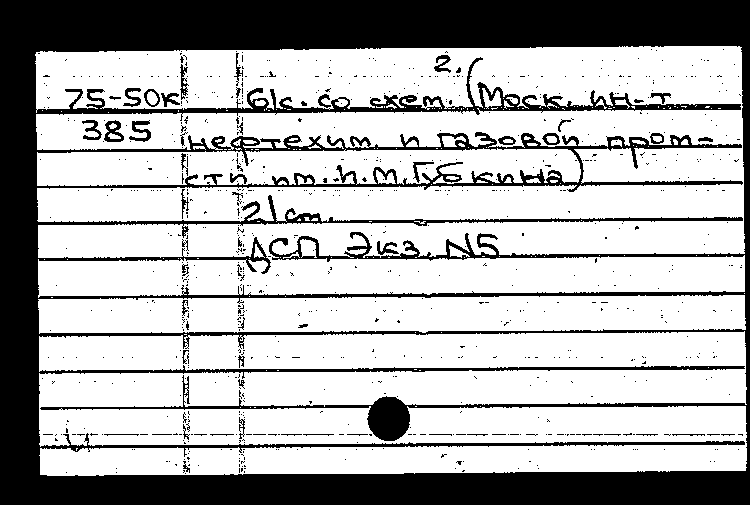 2.
75-50к 61с. со схем. (Моск. ин-т
385 нефтехим. и газовой пром-
сти им. И.М. Губкина)
21 см.
ДСП Экз. N5